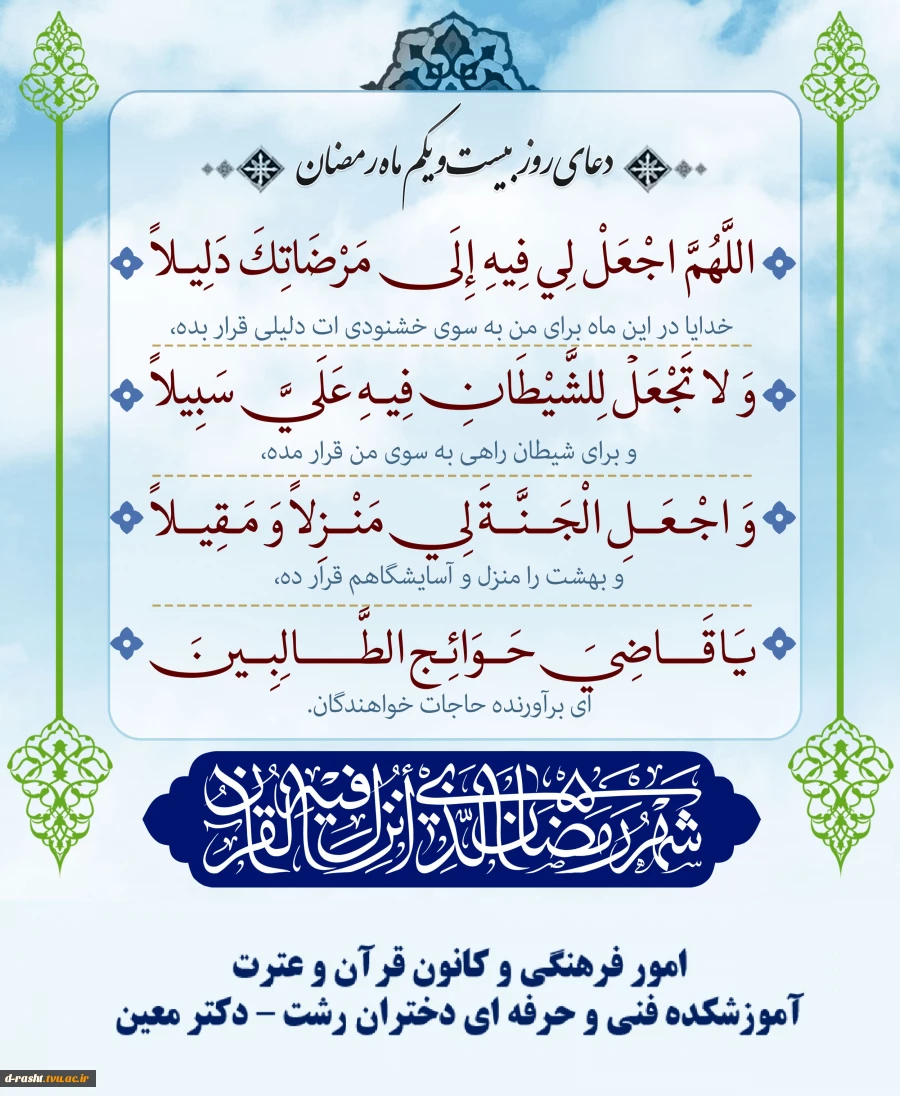 دعای روز بیست و یکم ماه رمضان
اللَّهُمَّ اجْعَلْ لِي فِيهِ إِلَى مَرْضَاتِكَ دَلِيلاً
خدایا در این ماه برای من به سوی خشنودی ات دلیلی قرار بده،
وَ لا تَجْعَلْ لِلشَّيْطَانِ فِيهِ عَلَيَّ سَبِيلاً
و برای شیطان راهی به سوی من قرار مده،
وَ اجْعَلِ الْجَنَّةَ لِي مَنْزِلاً وَ مَقِيلاً
و بهشت را منزل و آسایشگاهم قرار ده،
يَا قَاضِيَ حَوَائِجِ الطَّالِبِينَ
ای برآورنده حاجات خواهندگان.
شهر رمضان الذي أنزل فيه القرآن
امور فرهنگی و کانون قرآن و عترت
آموزشکده فنی و حرفه ای دختران رشت - دکتر معین
d-rasht.tvu.ac.ir